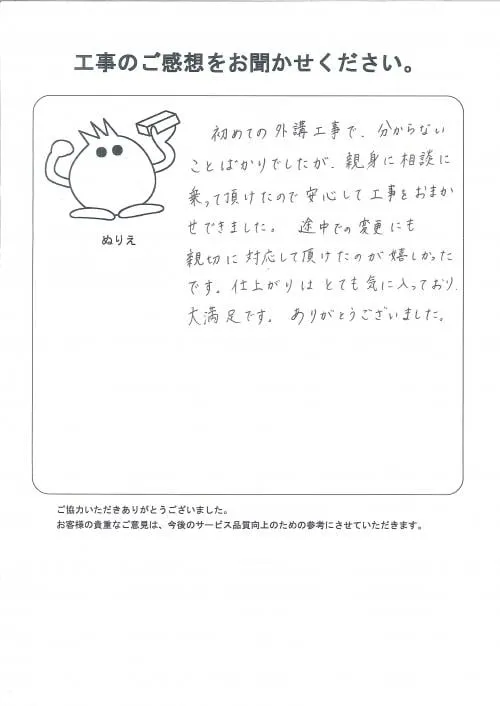 工事のご感想をお聞かせください。
初めての外講工事で、分からない
ことばかりでしたが、親身に相談に
乗って頂けたので安心して工事をおまか
せできました。 途中での変更にも
親切に対応して頂けたのが嬉しかった
です。仕上がりはとても気に入っており、
大満足です。 ありがとうございました。
ぬりえ
ご協力いただきありがとうございました。
お客様の貴重なご意見は、今後のサービス品質向上のための参考にさせていただきます。